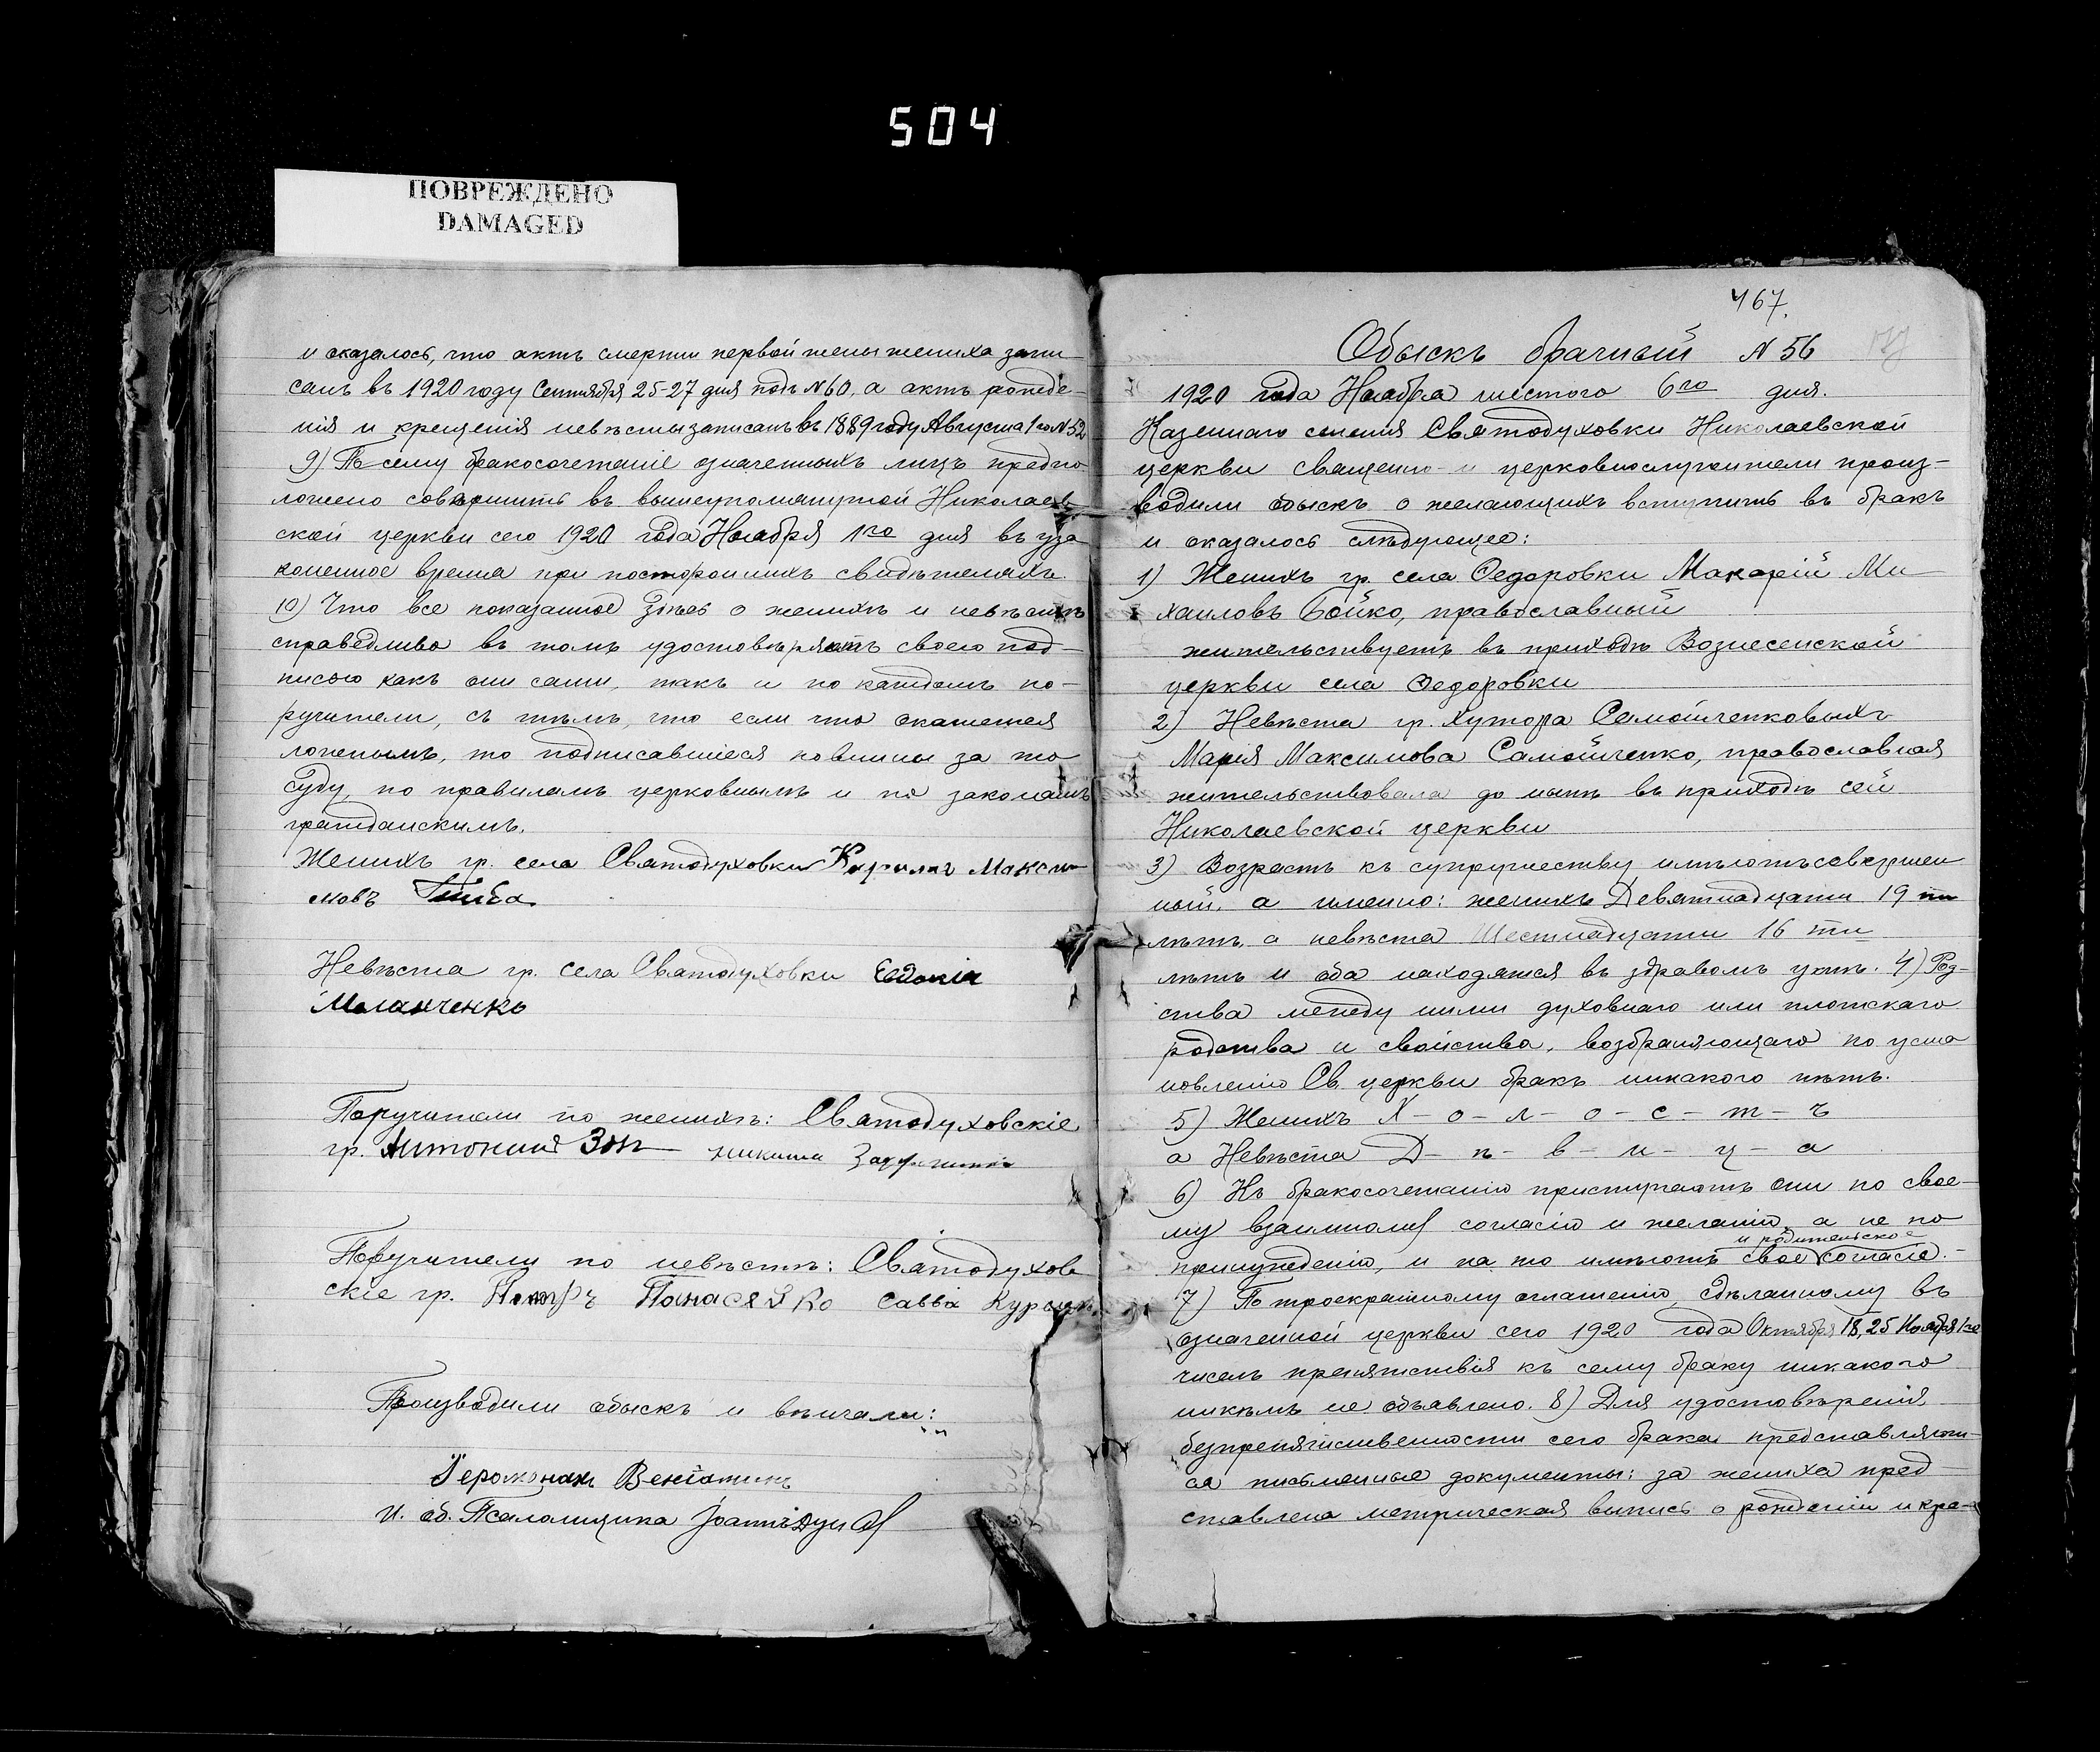 504
ПОВРЕЖДЕНО
DAMAGED
и оказалось, что актъ смерти первой жены жениха запи-
санъ въ 1920 году Сентября 25-27 дня подъ №60, а актъ рожде-
нія и крещенія невѣсты записанъ въ 1889 году Августа 1го №52
9) По сему бракосочетаніе означенныхъ лицъ предпо-
ложено совершить въ вышеупомянутой Николаев-
ской церкви сего 1920 года Ноября 1го дня въ уза-
коненное время при постороннихъ свидѣтеляхъ.
10) Что все показанное здѣсь о женихѣ и невѣстѣ
справедливо въ томъ удостовѣряютъ своею под-
писью какъ они сами, такъ и по каждомъ по-
ручители, съ тѣмъ, что если что окажется
ложнымъ, то подписавшіеся повинны за то
суду, по правиламъ церковнымъ и по законамъ
гражданскимъ.
Женихъ гр. села Святодуховки Кирилъ Макси-
мовъ
Невѣста гр. села Святодуховки Евдокія
Маланченко
Поручители по женихѣ: Святодуховскіе
гр. Антоній Никита
Поручители по невѣстѣ: Святодухов-
скіе гр. Петръ Панасенко Савва
Производили обыскъ и вѣнчали:
Іеромонахъ Веніаминъ
И. об. Псаломщика Іоаннъ
467.
Обыскъ брачный № 56
1920 года Ноября шестого 6го дня.
Казеннаго селенія Святодуховки Николаевской
церкви священно- и церковнослужители произ-
водили обыскъ о желающихъ вступить въ бракъ
и оказалось слѣдующее:
1) Женихъ гр. села Федоровки Макарій Ми-
хаиловъ Бойко, православный
жительствуетъ въ приходѣ Вознесенской
церкви села Федоровки
2) Невѣста гр. хутора Самойленковыхъ
Марія Максимова Самойленко, православная
жительствовала до нынѣ въ приходѣ сей
Николаевской церкви
3) Возрастъ къ супружеству имѣютъ совершен-
ный, а именно: женихъ Девятнадцати 19 ти
лѣтъ, а невѣста Шестнадцати 16 ти
лѣтъ и оба находятся въ здравомъ умѣ. 4) Род-
ства между ними духовнаго или плотскаго
родства и свойства, возбраняющаго по уста-
новленію Св. церкви бракъ никакого нѣтъ.
5) Женихъ Х - о - л - о - с - т - ъ
а Невѣста Д - ѣ - в - и - ц - а
6) Къ бракосочетанію приступаютъ они по свое-
му взаимному согласію и желанію, а не по
и родительское
принужденію, и на то имѣютъ свое согласіе.
7) По троекратному оглашенію, сдѣланному въ
означенной церкви сего 1920 года Октября 18, 25 Ноября 1го
числъ препятствія къ сему браку никакого
никѣмъ не объявлено. 8) Для удостовѣренія
безпрепятственности сего брака представляют-
ся письменные документы: за жениха пред-
ставлена метрическая выпись о рожденіи и кре-